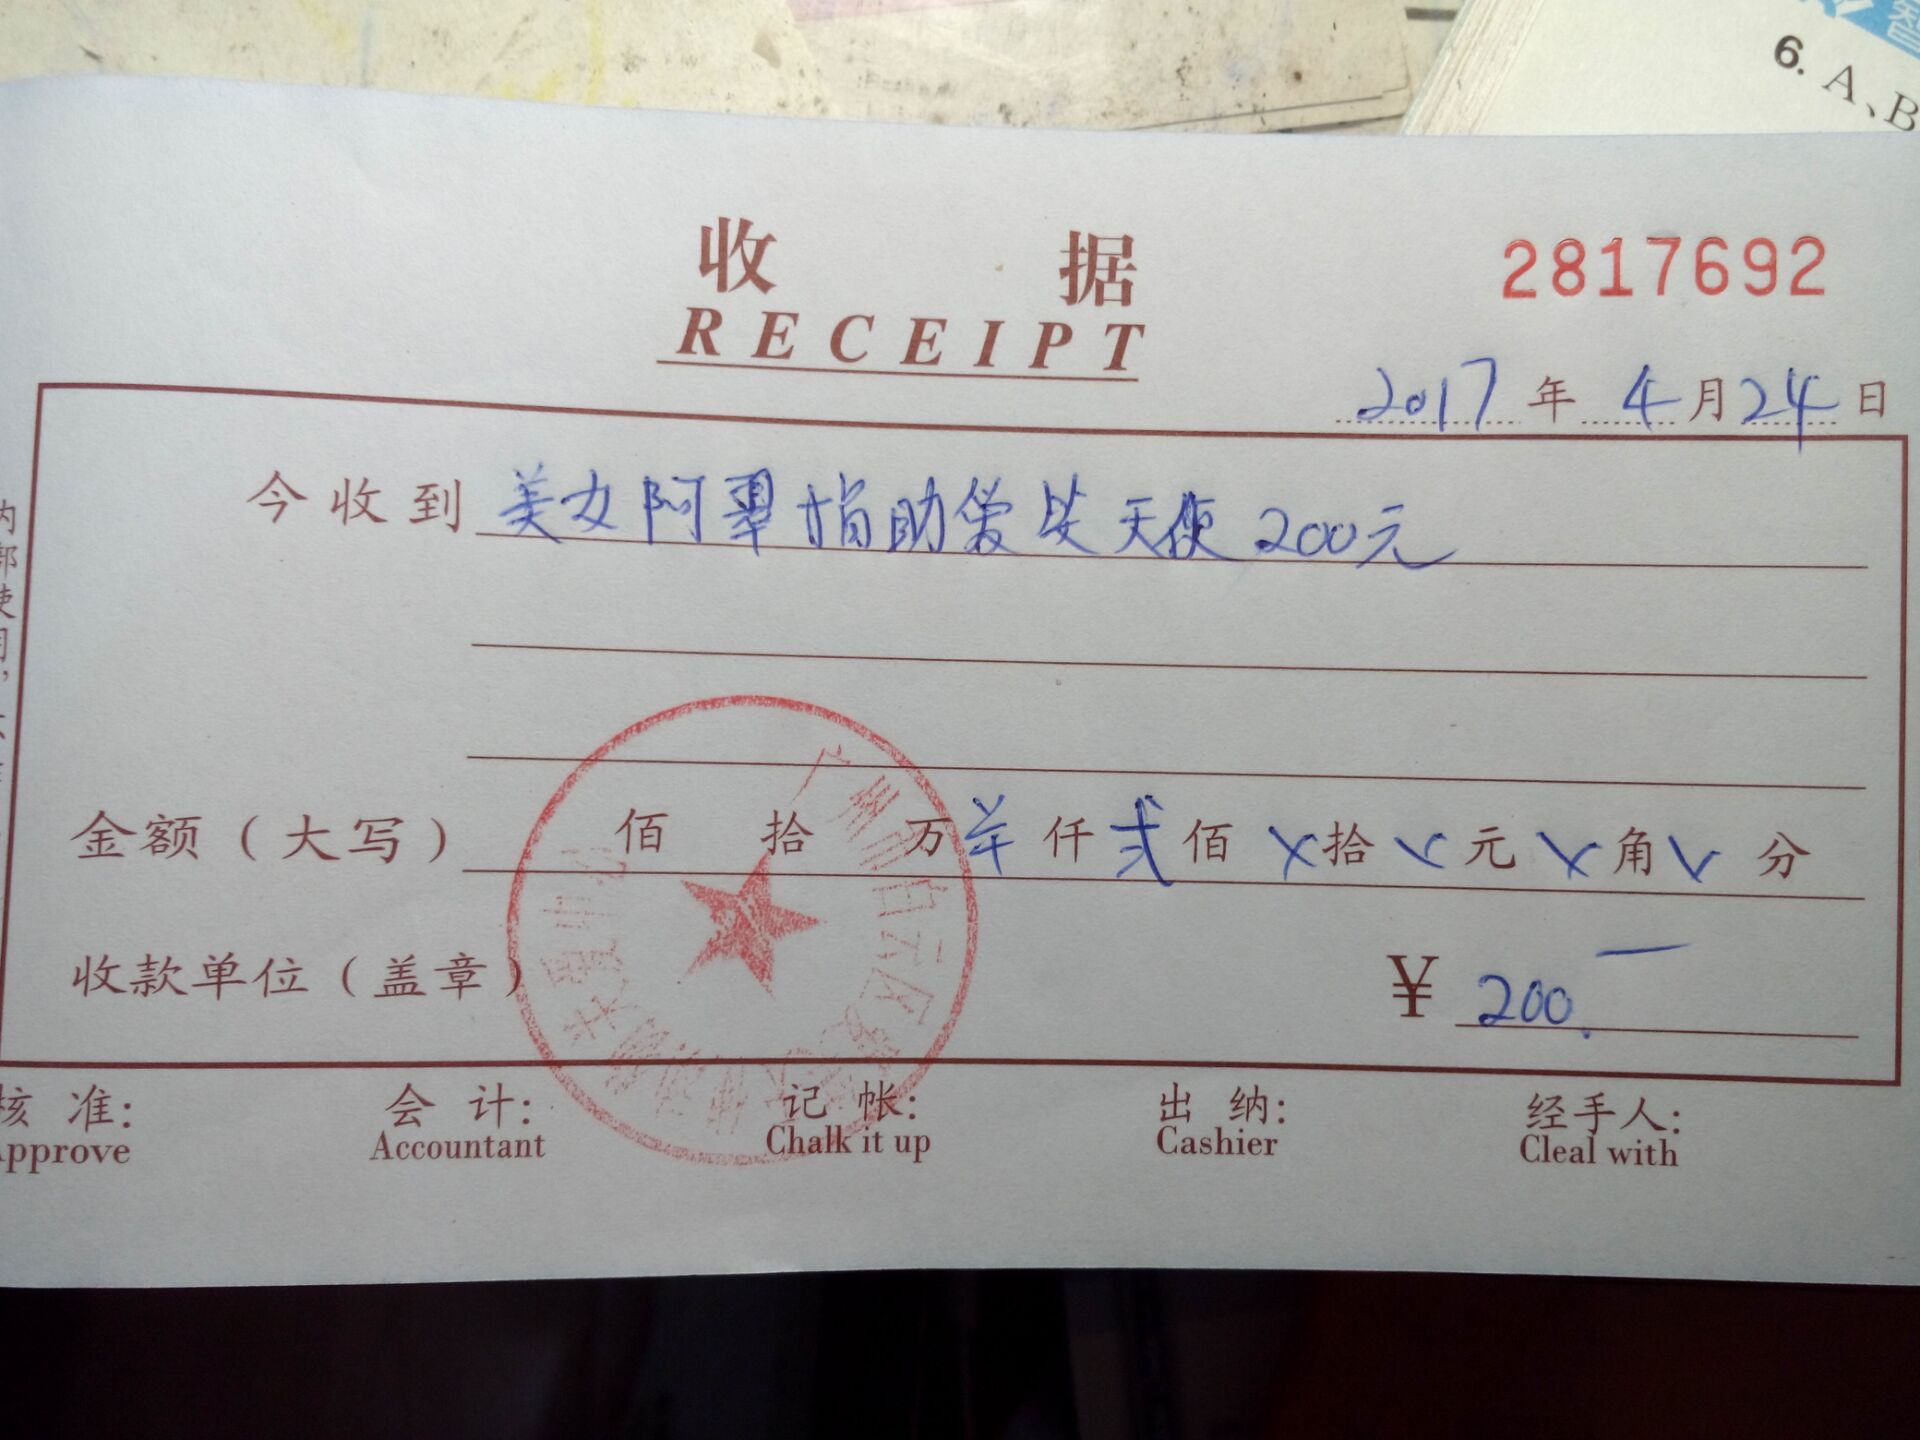 6. A、B
收 据
2817692
RECEIPT
2017 年 4 月 24 日
今收到 美女阿翠捐助爱 天使 200元
金额（大写） 佰 拾 万 仟 贰 佰 拾 元 角 分
收款单位（盖章） ¥ 200.一
广州市白云区
核 准: 会 计: 记 帐: 出 纳: 经手人:
Approve Accountant Chalk it up Cashier Cleal with